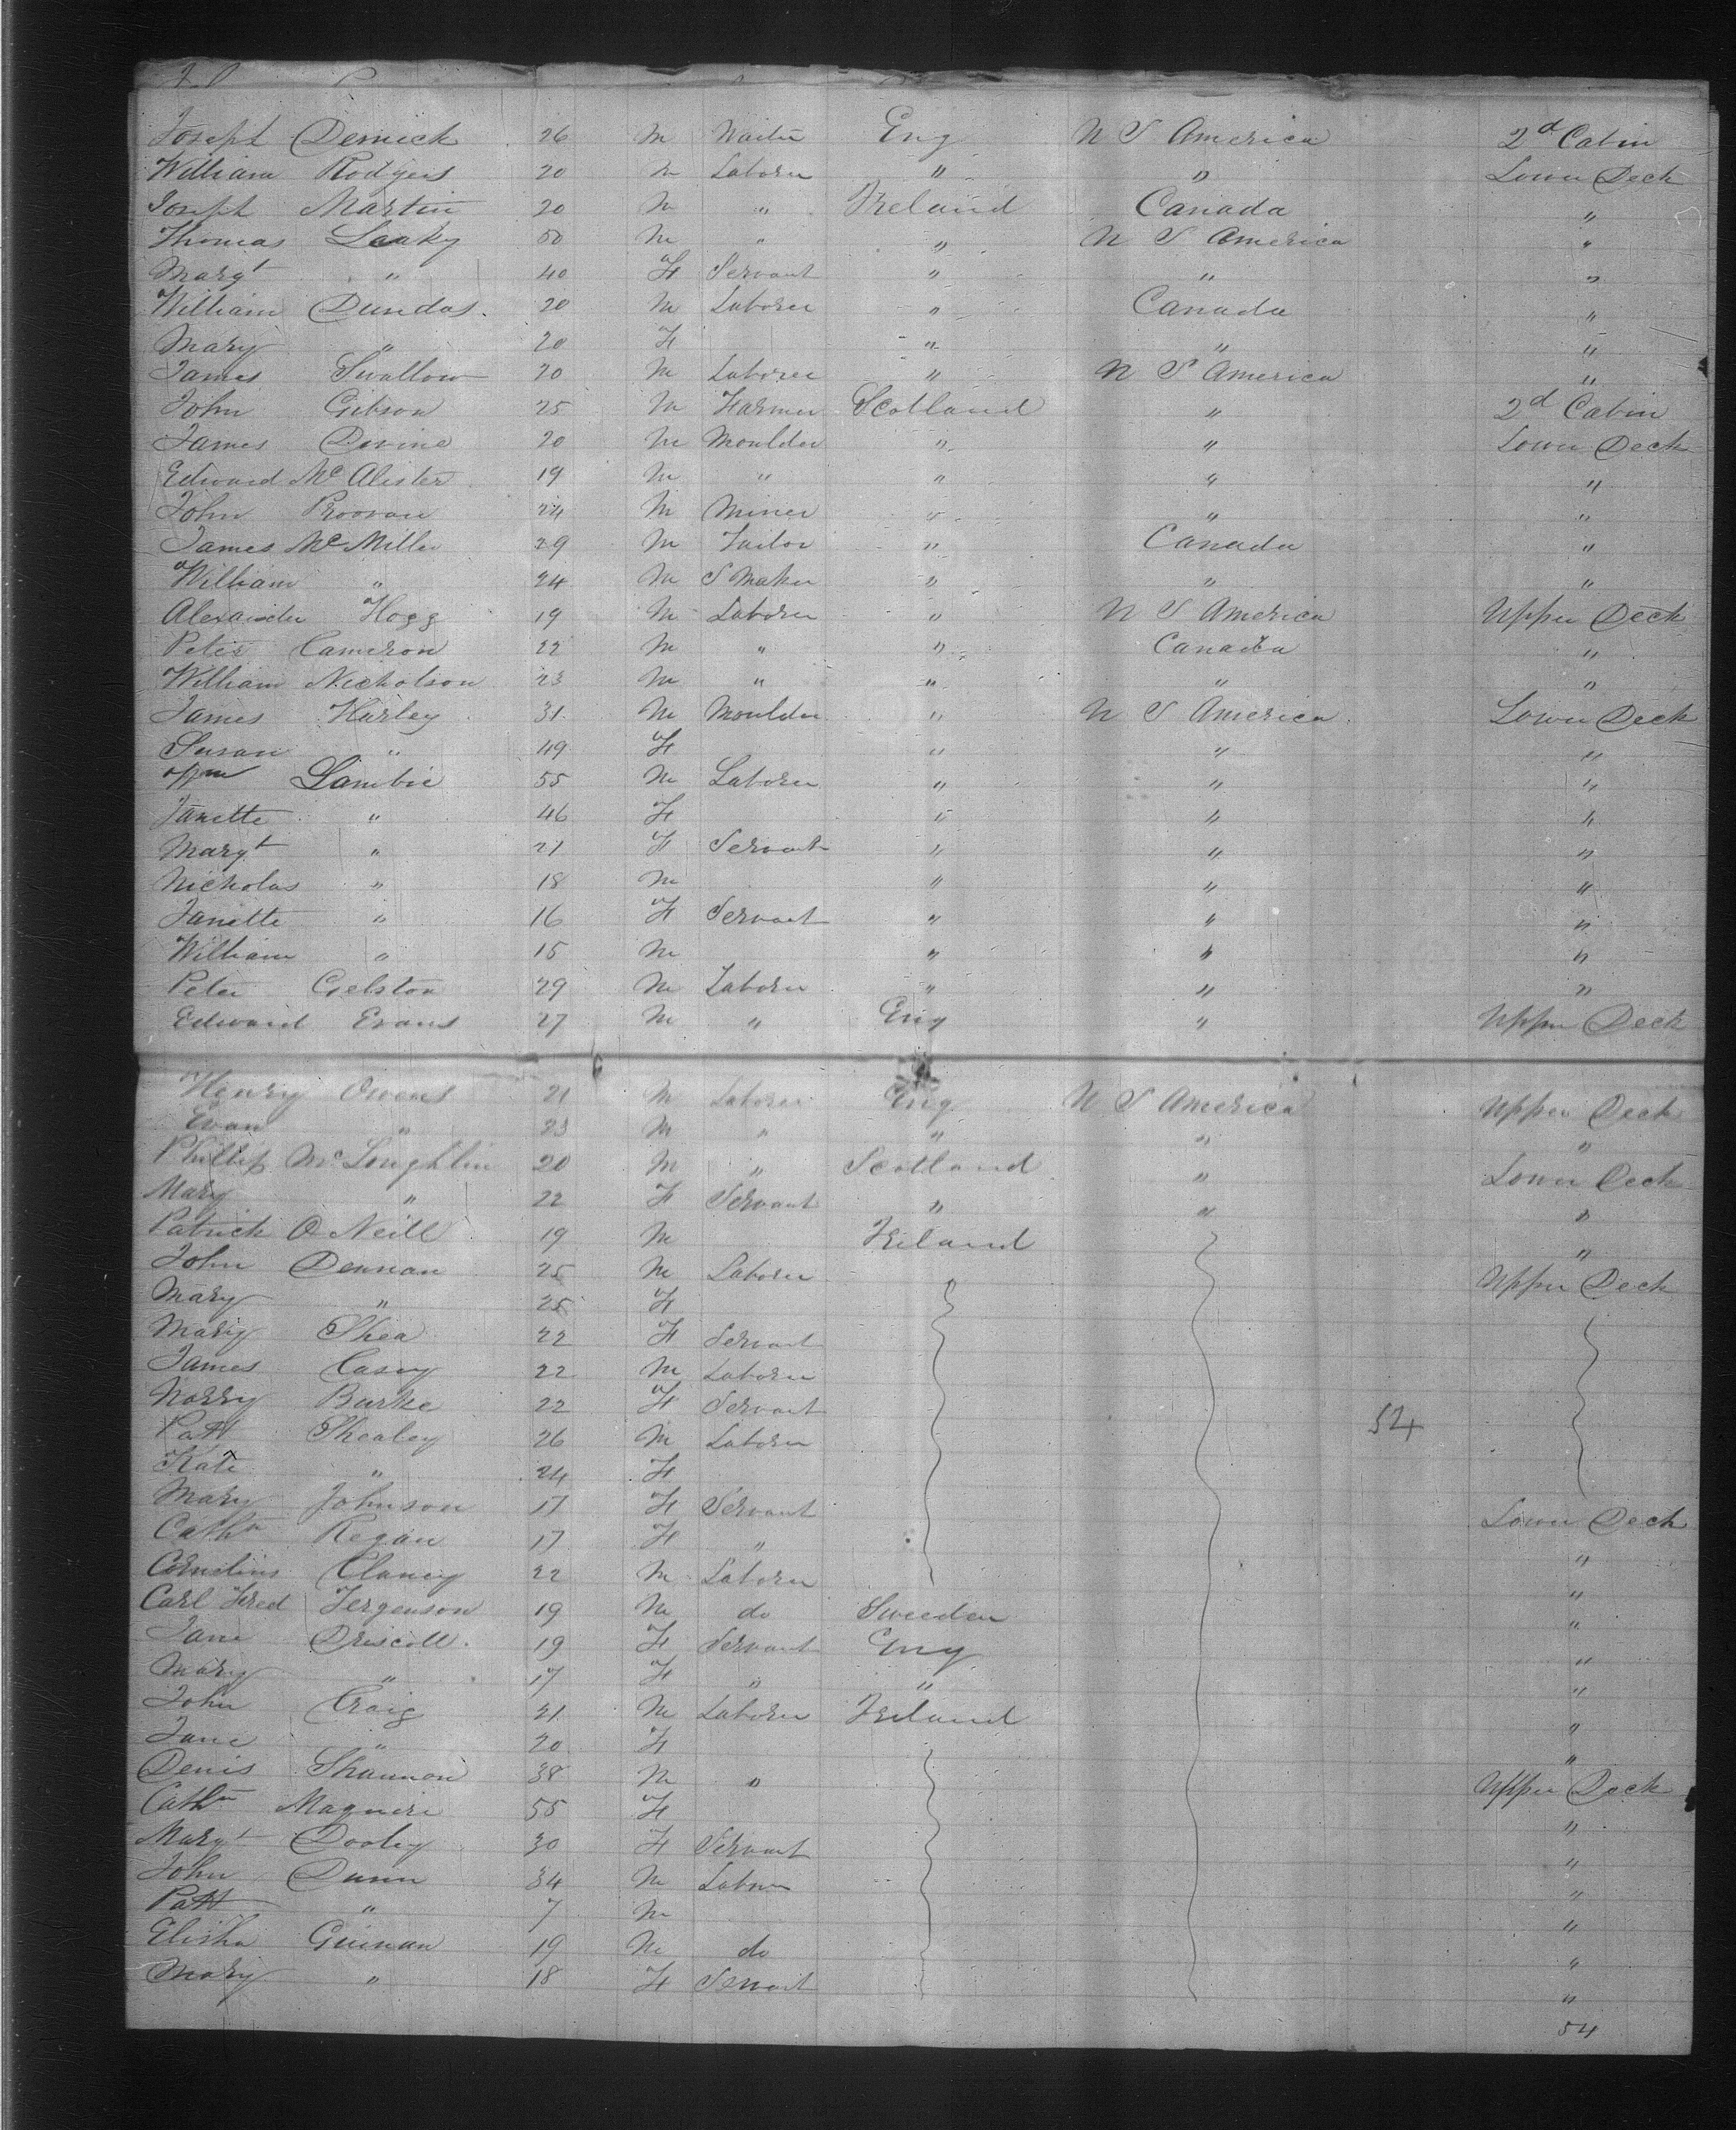 Joseph Derrick 26 M Waiter Eng U S America 2d Cabin
William Rodgers 20 M Laborer " " Lower Deck
Joseph Martin 20 M " Ireland Canada "
Thomas Leaky 50 M " " U S America "
Margt " 40 F Servant " " "
William Dundas 20 M Laborer " Canada "
Mary " 20 F " " "
James Swallow 20 M Laborer " U S America "
John Gibson 25 M Farmer Scotland " 2d Cabin
James Devine 20 M Moulder " " Lower Deck
Edward McAlister 19 M " " " "
John Proovan 24 M Miner " " "
James McMiller 29 M Tailor " Canada "
William " 24 M S Maker " " "
Alexander Hogg 19 M Laborer " U S America Upper Deck
Peter Cameron 22 M " " Canada "
William Nicholson 23 M " " " "
James Harley 31 M Moulder " U S America Lower Deck
Susan " 49 F " " "
Wm Lambie 55 M Laborer " " "
Janette " 46 F " " "
Margt " 21 F Servant " " "
Nicholas " 18 M " " "
Janette " 16 F Servant " " "
William " 15 M " " "
Peter Gelston 29 M Laborer " " "
Edward Evans 27 M " Eng " Upper Deck
Henry Owens 21 M Laborer Eng U S America Upper Deck
Evan " 23 M " " " "
Phillip McLoughlin 20 M " Scotland " Lower Deck
Mary " 22 F Servant " " "
Patrick O Neill 19 M Ireland "
John Dennan 25 M Laborer Upper Deck
Mary " 25 F
Mary Shea 22 F Servant
James Casey 22 M Laborer
Norry Burke 22 F Servant
Patt Shealey 26 M Laborer 54
Kate " 24 F
Mary Johnson 17 F Servant Lower Deck
Cathn Regan 17 F " "
Cornelius Clancy 22 M Laborer "
Carl Fred Jergenson 19 M do Sweeden "
Jane Driscoll 19 F Servant Eng "
Mary " 17 F " " "
John Craig 21 M Laborer Ireland "
Jane " 20 F "
Denis Shannon 38 M " Upper Deck
Cathn Maguire 55 F "
Margt Dooley 30 F Servant "
John Dunn 34 M Labrer "
Patt " 7 M "
Elisha Guinan 19 M do "
Mary " 18 F Servant "
54